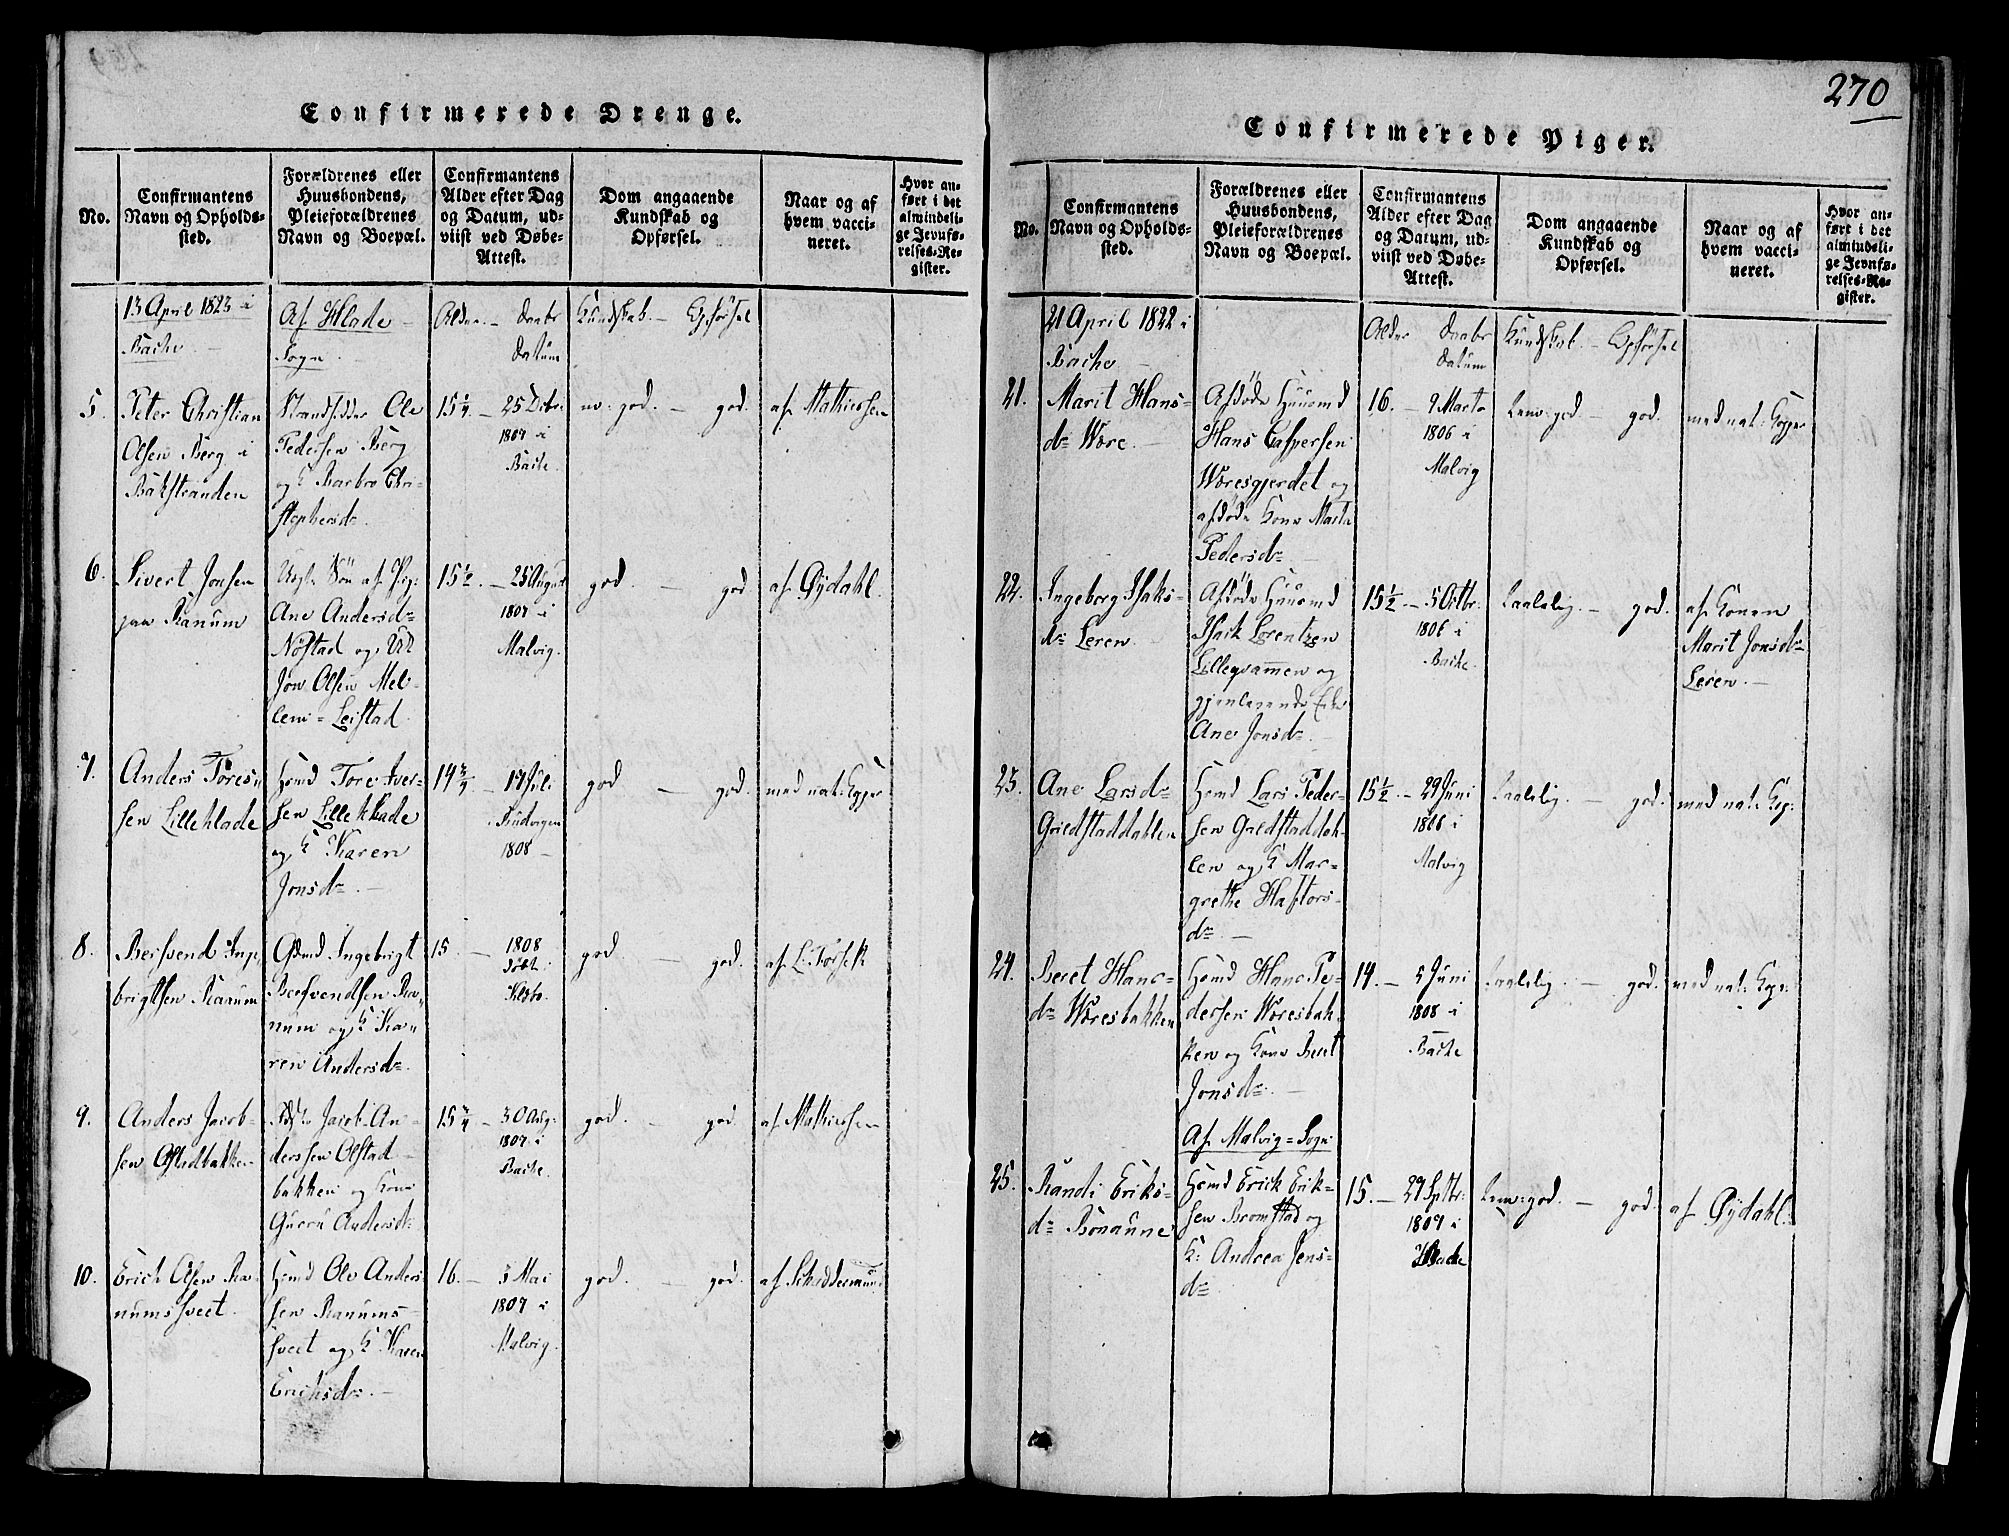 270
Confirmerede Drenge.
No.
Confirmantens
Navn og Opholds-
sted.
Forældrenes eller
Huusbondens,
Pleieforældrenes
Navn og Boepæl.
Confirmantens
Alder efter Dag
og Datum, ud-
viist ved Døbe-
Attest.
Dom angaaende
Kundskab og
Opførsel.
Naar og af
hvem vacci-
neret.
Hvor an-
ført i det
almindeli-
ge Jevnfø-
relses-Re-
gister.
13 April 1823 i
Bache
Af Hlade
Sogn
Alder. - Daabs
Datum
Kundskab. - Opførsel
5.
Peter Christian
Olsen Berg i
Bakstranden
Strandsidder Ole
Pedersen Berg
og K Barbro Chri-
stophersd=
15¼. - 25 Decbr:
1807 i
Bache.
nv: god. - god.
af Mathiessen
6.
Sivert Jonsen
paa Ranum
Uægte Søn af Pig:
Ane Andersd=
Nøstad og
Jon Olsen Mel-
lem=Leistad.
15½. - 25 August
1807 i
Malvig.
god. - god
af Øydahl.
7.
Anders Tøres-
sen Lillehlade
Hsmd Tore Iver-
sen Lillehlade
og K Karen
Jonsd=. -
14¾ - 17 Juli
1808 -
god - god.
med nat: Kopper
8.
Beisvend Inge-
brigtsen Ranum
Gdmd Ingebrigt
Beisvendsen Ra-
num og K Ka-
ren Andersd=.
15. - 1808
døbt i
Klæbo.
god. - god.
af L: Forseth
9.
Anders Jacob-
sen Olstadbakken
Jacob An-
derssen Olstad-
bakken og Kone
Guru Andersd=
15¾ - 30 Aug:
1807 i
Bache.
god. - god
af Mathiessen
10.
Erich Olsen Ra-
numssveet.
Hsmd Ole Anders-
sen Ranums-
sveet og K. Karen
Erichsd=. -
16. - 3 Mai
1807 i
Malvig.
god. - god.
af
Confirmerede Piger.
No.
Confirmantens
Navn og Opholds-
sted.
Forældrenes eller
Huusbondens,
Pleieforældrenes
Navn og Boepæl.
Confirmantens
Alder efter Dag
og Datum, ud-
viist ved Døbe-
Attest.
Dom angaaende
Kundskab og
Opførsel.
Naar og af
hvem vacci-
neret.
Hvor an-
ført i det
almindeli-
ge Jevnfø-
relses-Re-
gister.
21 April 1822 i
Bache -
Alder Daabs
Datum
Kundskab. - Opførsel
21.
Marit Hans-
d= Wøre. -
Afdøde Huusmd
Hans Caspersen
Wøresgjerdet og
afdøde Kone Marta
Pedersd= -
16. - 9 Marts
1806 i
Malvig
god - god.
med nat: Kopper
22.
Ingeborg Isaks-
d= Leren -
Afdøde Huusmd
Isach Lorentzen
Lilleqvammen og
gjenlevende Enke
Ane Jonsd=. -
15½ - 5 Octbr.
1806 i
Bache.
Taalelig. - god.
af Konen
Marit Jonsd=
Leren. -
23.
Ane Larsd=
Griedstaddahlen
Hsmd Lars Peder-
sen Griedstaddah-
len og K Mar-
grethe Haftors-
d=. -
15½ - 29 Juni
1806 i
Malvig
Taalelig. - god.
med nat: Kop:
24.
Beret Hans-
d= Wøresbakken
Hsmd Hans Pe-
dersen Wøresbak-
ken og Kone Beret
Jonsd=. -
14. - 5 Juni
1808 i
Bache
Taalelig. - god.
med nat: Kop:
Af Malvig=Sogn
25.
Randi Eriks-
d= Bonaune
Hsmd Erick Erik-
sen Bromstad og
K: Andrea Jens-
d=
15. - 29 Septbr:
1807 i
god. - god.
af Øydahl.